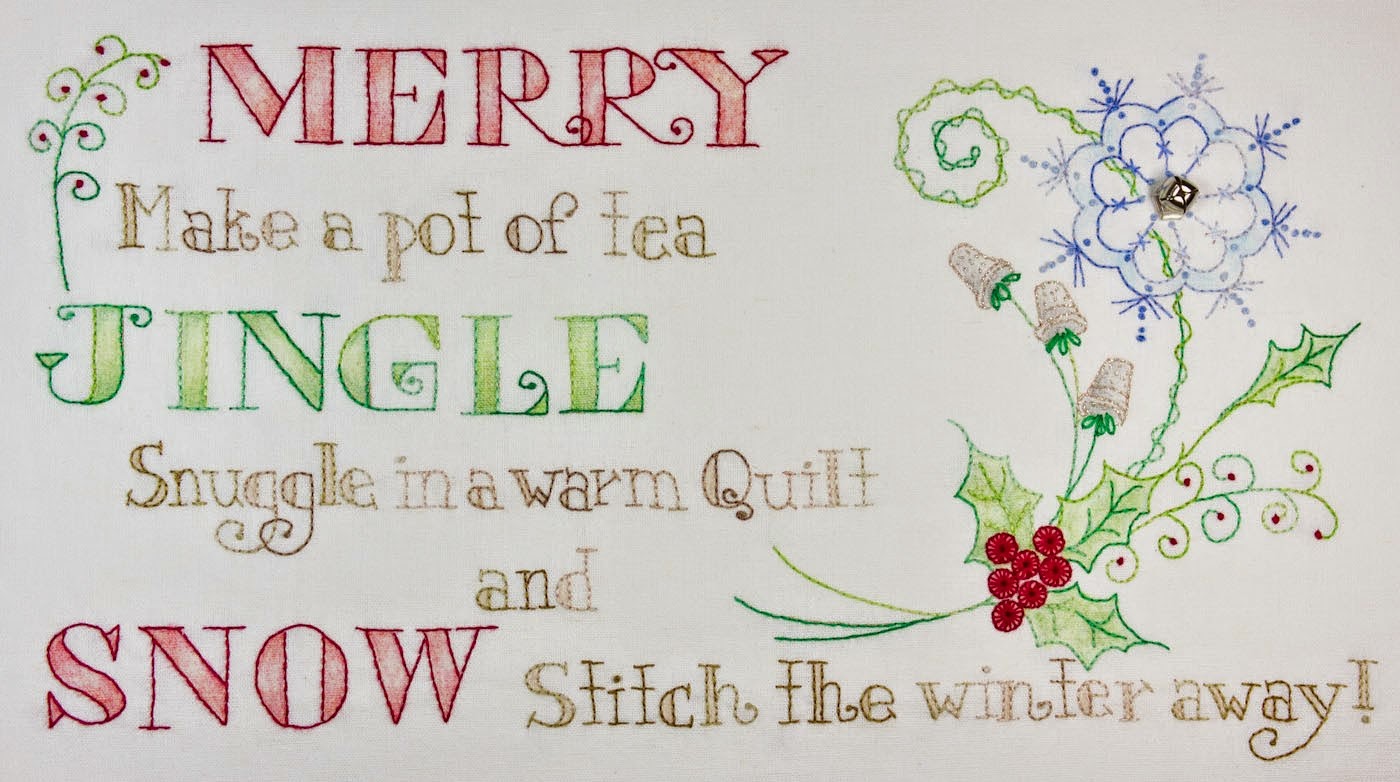 MERRY
Make a pot of tea
JINGLE
Snuggle in a warm Quilt
and
SNOW Stitch the winter away!